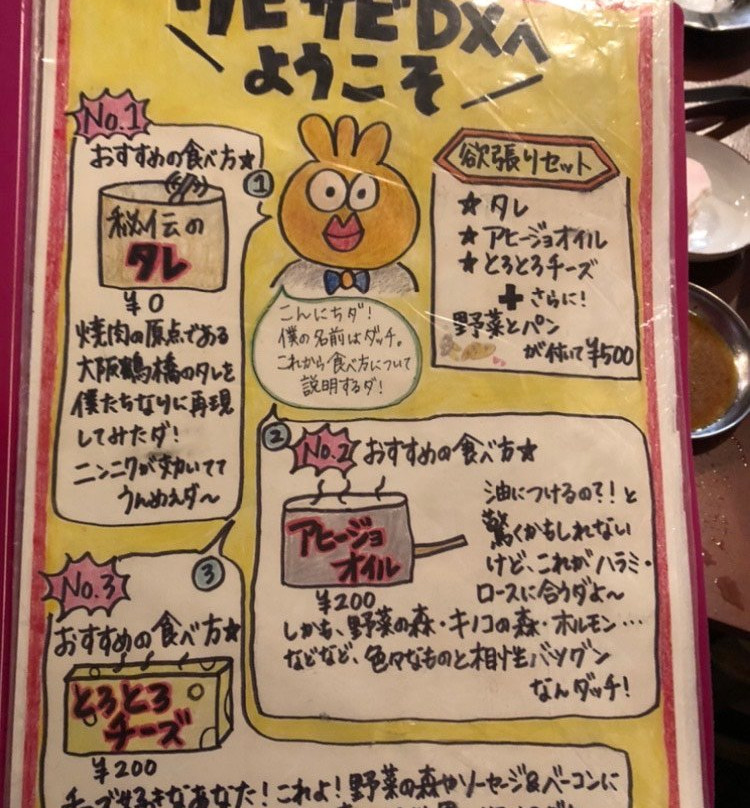 ワビサビDXへ
ようこそ
No.1
おすすめの食べ方★
①
秘伝の
タレ
¥0
焼肉の原点である
大阪鶴橋のタレを
僕たちなりに再現
してみたダ!
ニンニクが効いてて
うんめえダ〜
こんにちダ!
僕の名前はダッチ。
これから食べ方について
説明するダ!
欲張りセット
★タレ
★アヒージョオイル
★とろとろチーズ
+さらに!
野菜とパン
が付いて¥500
②
No.2
おすすめの食べ方★
アヒージョ
オイル
¥200
油につけるの?!と
驚くかもしれない
けど、これがハラミ・
ロースに合うダよ〜
しかも、野菜の森・キノコの森・ホルモン…
などなど、色々なものと相性バツグン
なんダッチ!
③
No.3
おすすめの食べ方★
とろとろ
チーズ
¥200
チーズ好きなあなた!これよ!野菜の森やソーセージ&ベーコンに